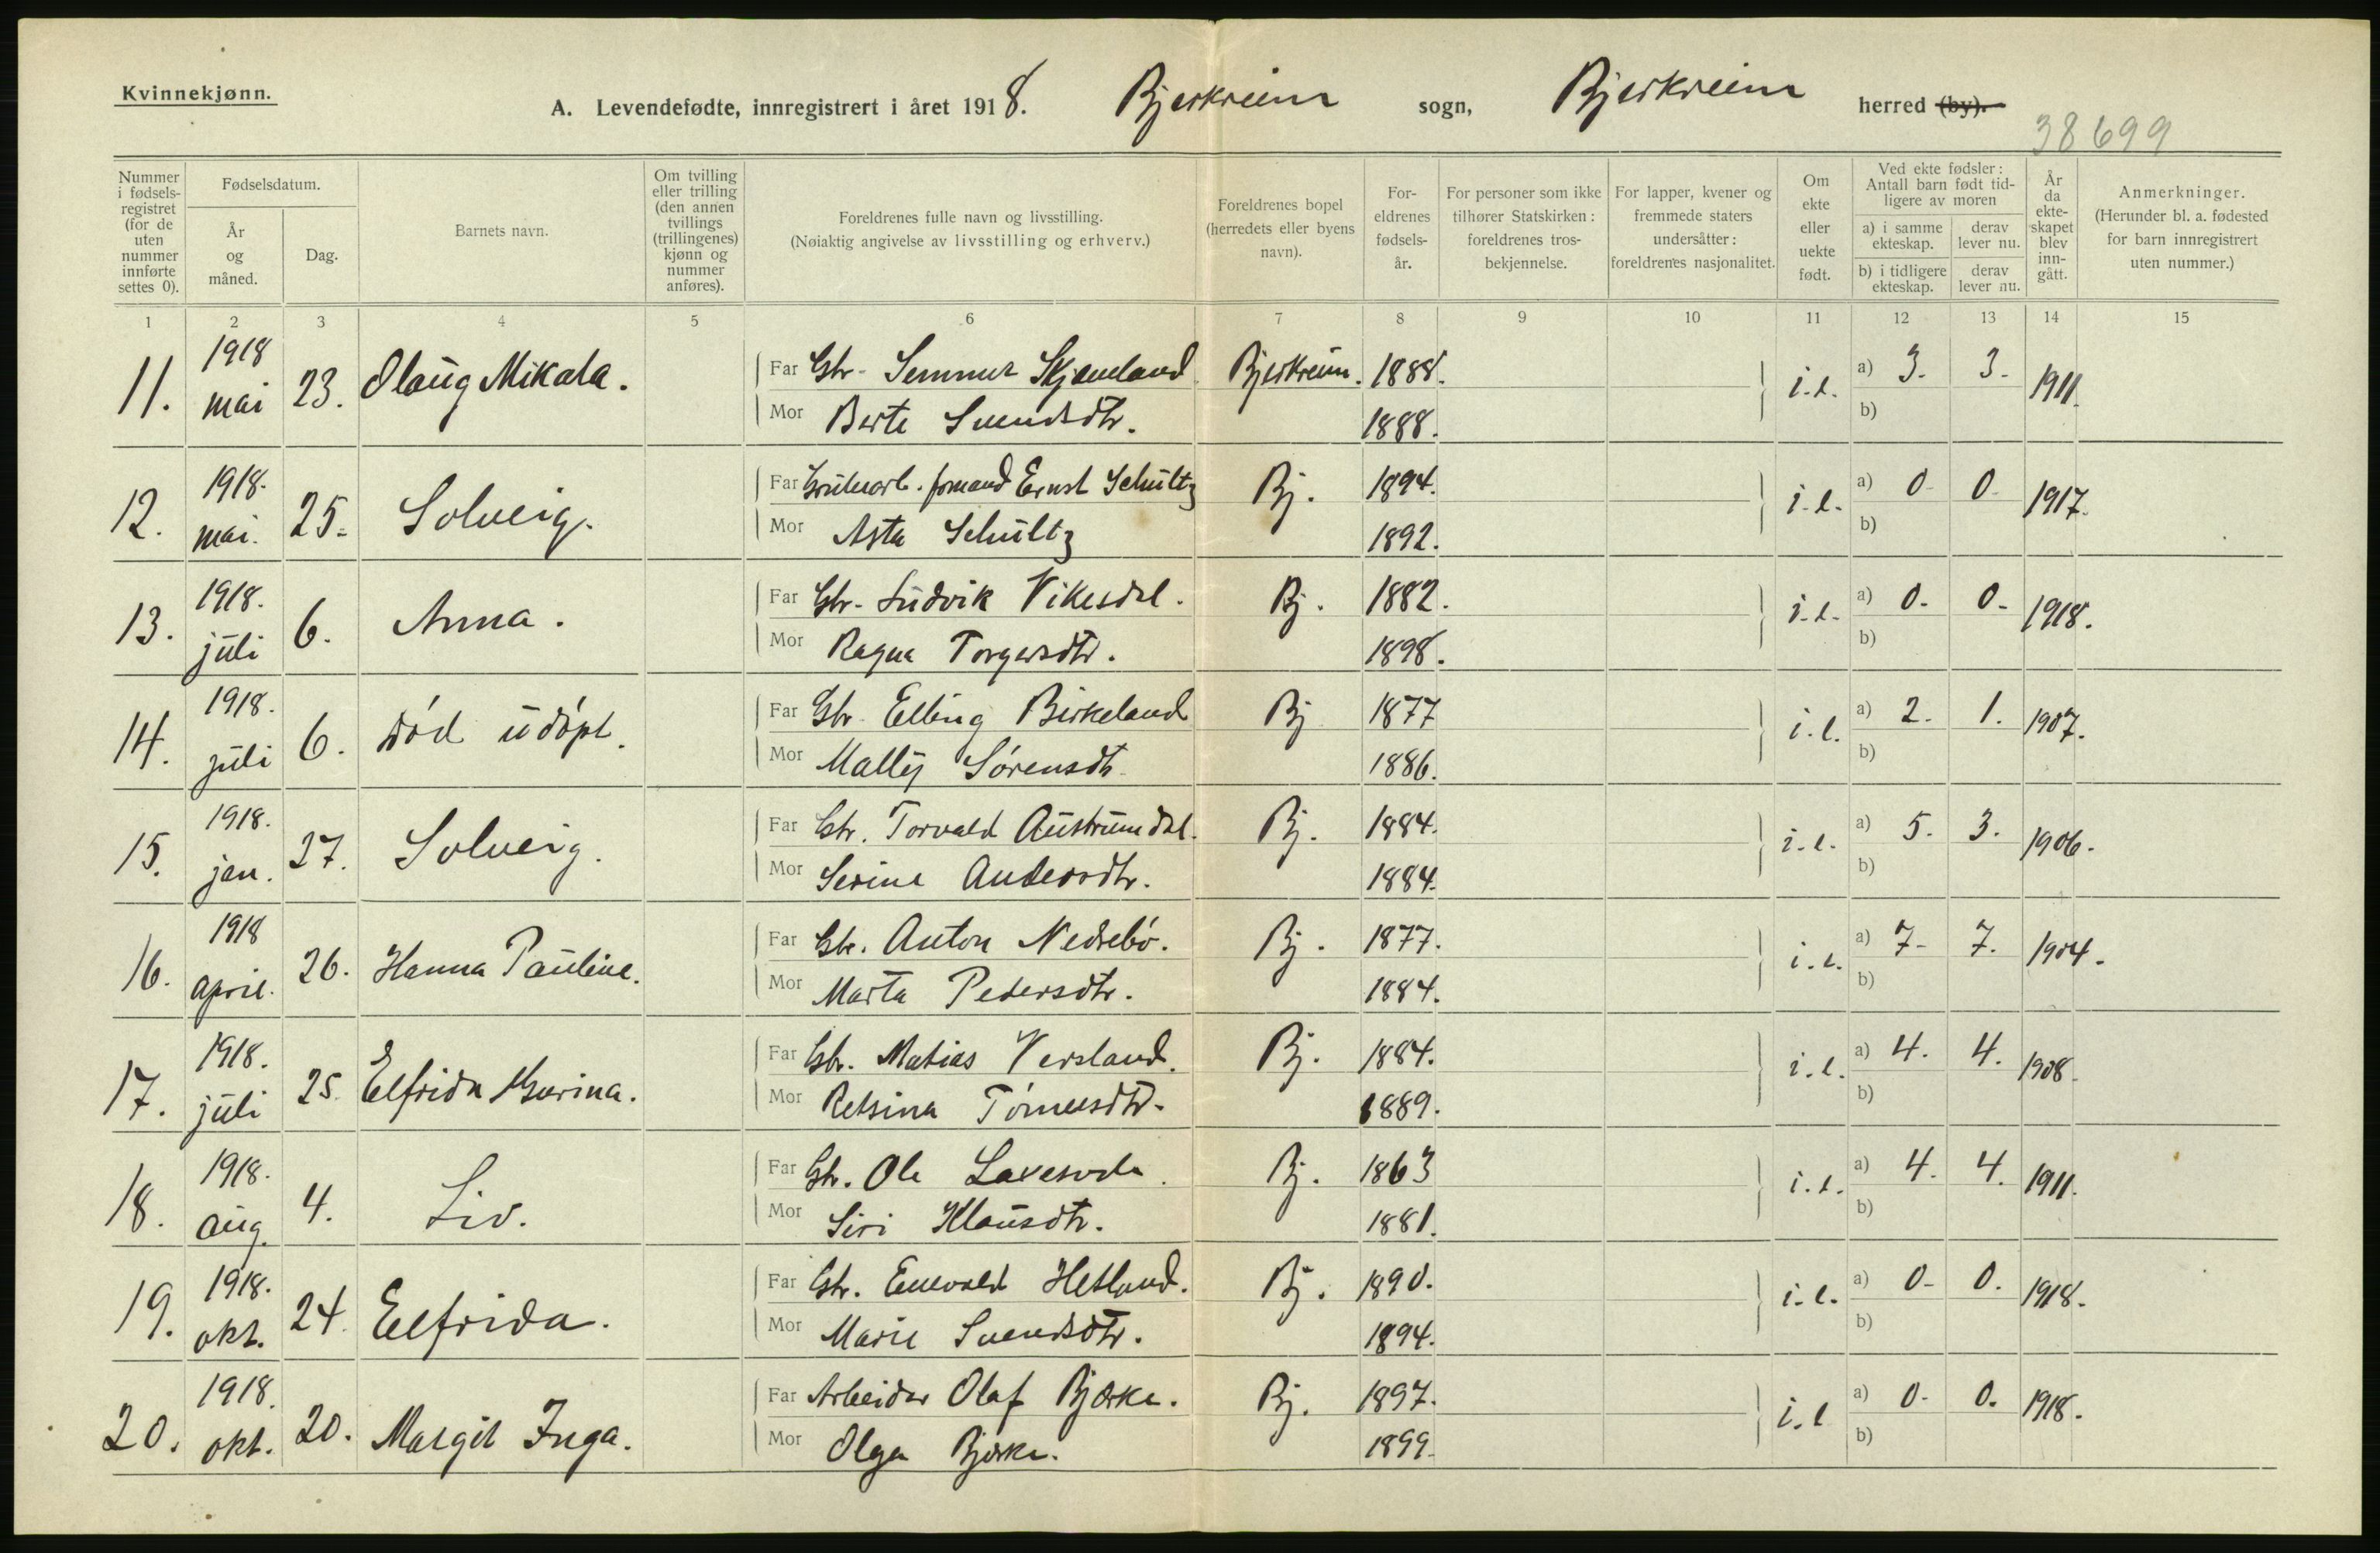 Kvinnekjønn.
A. Levendefødte, innregistrert i året 1918. Bjerkreim sogn, Bjerkreim herred (by).
38699
Nummer i fødselsregistret (for de uten nummer innførte settes 0).
Fødselsdatum.
År og måned.
Dag.
Barnets navn.
Om tvilling eller trilling (den annen tvillings (trillingenes) kjønn og nummer anføres).
Foreldrenes fulle navn og livsstilling.
(Nøiaktig angivelse av livsstilling og erhverv.)
Foreldrenes bopel (herredets eller byens navn).
Foreldrenes fødselsår.
For personer som ikke tilhører Statskirken: foreldrenes trosbekjennelse.
For lapper, kvener og fremmede staters undersåtter: foreldrenes nasjonalitet.
Om ekte eller uekte født.
Ved ekte fødsler: Antall barn født tidligere av moren
a) i samme ekteskap.
derav lever nu.
b) i tidligere ekteskap.
derav lever nu.
År da ekteskapet blev inngått.
Anmerkninger.
(Herunder bl. a. fødested for barn innregistrert uten nummer.)
1 2 3 4 5 6 7 8 9 10 11 12 13 14 15
11. 1918 mai 23. Olaug Mikala. Far Gbr. Skjæveland Bjerkreim. 1888. i.e. a) 3. 3. 1911.
Mor Berte Svendsdtr. 1888. b)
12. 1918. mai. 25. Solveig. Far formand Ernst Schultz Bj. 1894. i.e. a) 0 0 1917.
Mor Asta Schultz 1892. b)
13. 1918. juli 6. Anna. Far Gbr. Ludvik Vikesdal. Bj. 1882. i.e. a) 0. 0. 1918.
Mor Ragna Torgersdtr. 1898. b)
14. 1918. juli 6. død udøpt. Far Gbr. Elling Birkeland Bj 1877 i.e. a) 2. 1. 1907.
Mor Mally Sørensdtr 1886. b)
15. 1918. jan. 27. Solveig. Far Gbr. Torvald Austrumdal. Bj. 1884. i.e. a) 5. 3. 1906.
Mor Serine Andersdtr. 1884. b)
16. 1918 april. 26. Hanna Pauline. Far Gbr. Anton Nedrebø. Bj. 1877. i.e. a) 7. 7. 1904.
Mor Marta Pedersdtr. 1884. b)
17. 1918. juli 25. Elfrida Gurina. Far Gbr. Matias Versland. Bj. 1884. i.e. a) 4. 4. 1908.
Mor Retsina Tønnesdtr. 1889. b)
18. 1918. aug. 4. Liv. Far Gbr. Ole Bj. 1863 i.e. a) 4. 4. 1911.
Mor Siri Klausdtr. 1881. b)
19. 1918. okt. 24. Elfrida. Far Gbr. Enevald Hetland. Bj. 1890. i.e. a) 0. 0. 1918.
Mor Marie Svendsdtr. 1894. b)
20. 1918. okt. 20. Margit Inga. Far Arbeider Olaf Bjørke. Bj. 1897. i.e a) 0. 0. 1918.
Mor Olga Bjørke. 1899. b)